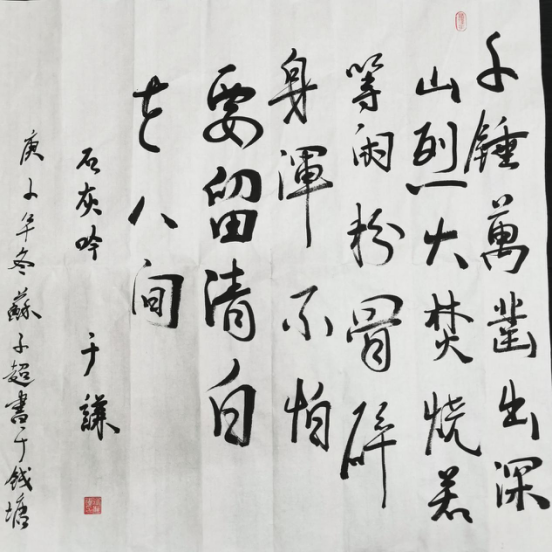 千錘萬凿出深
山烈火焚烧若
等闲粉骨碎
身渾不怕
要留清白
在人间
石灰吟 于謙
庚子年冬蘇子超書于钱塘